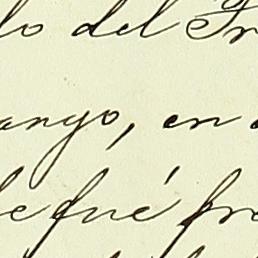 lo del Tr
ango, en
le fué pr